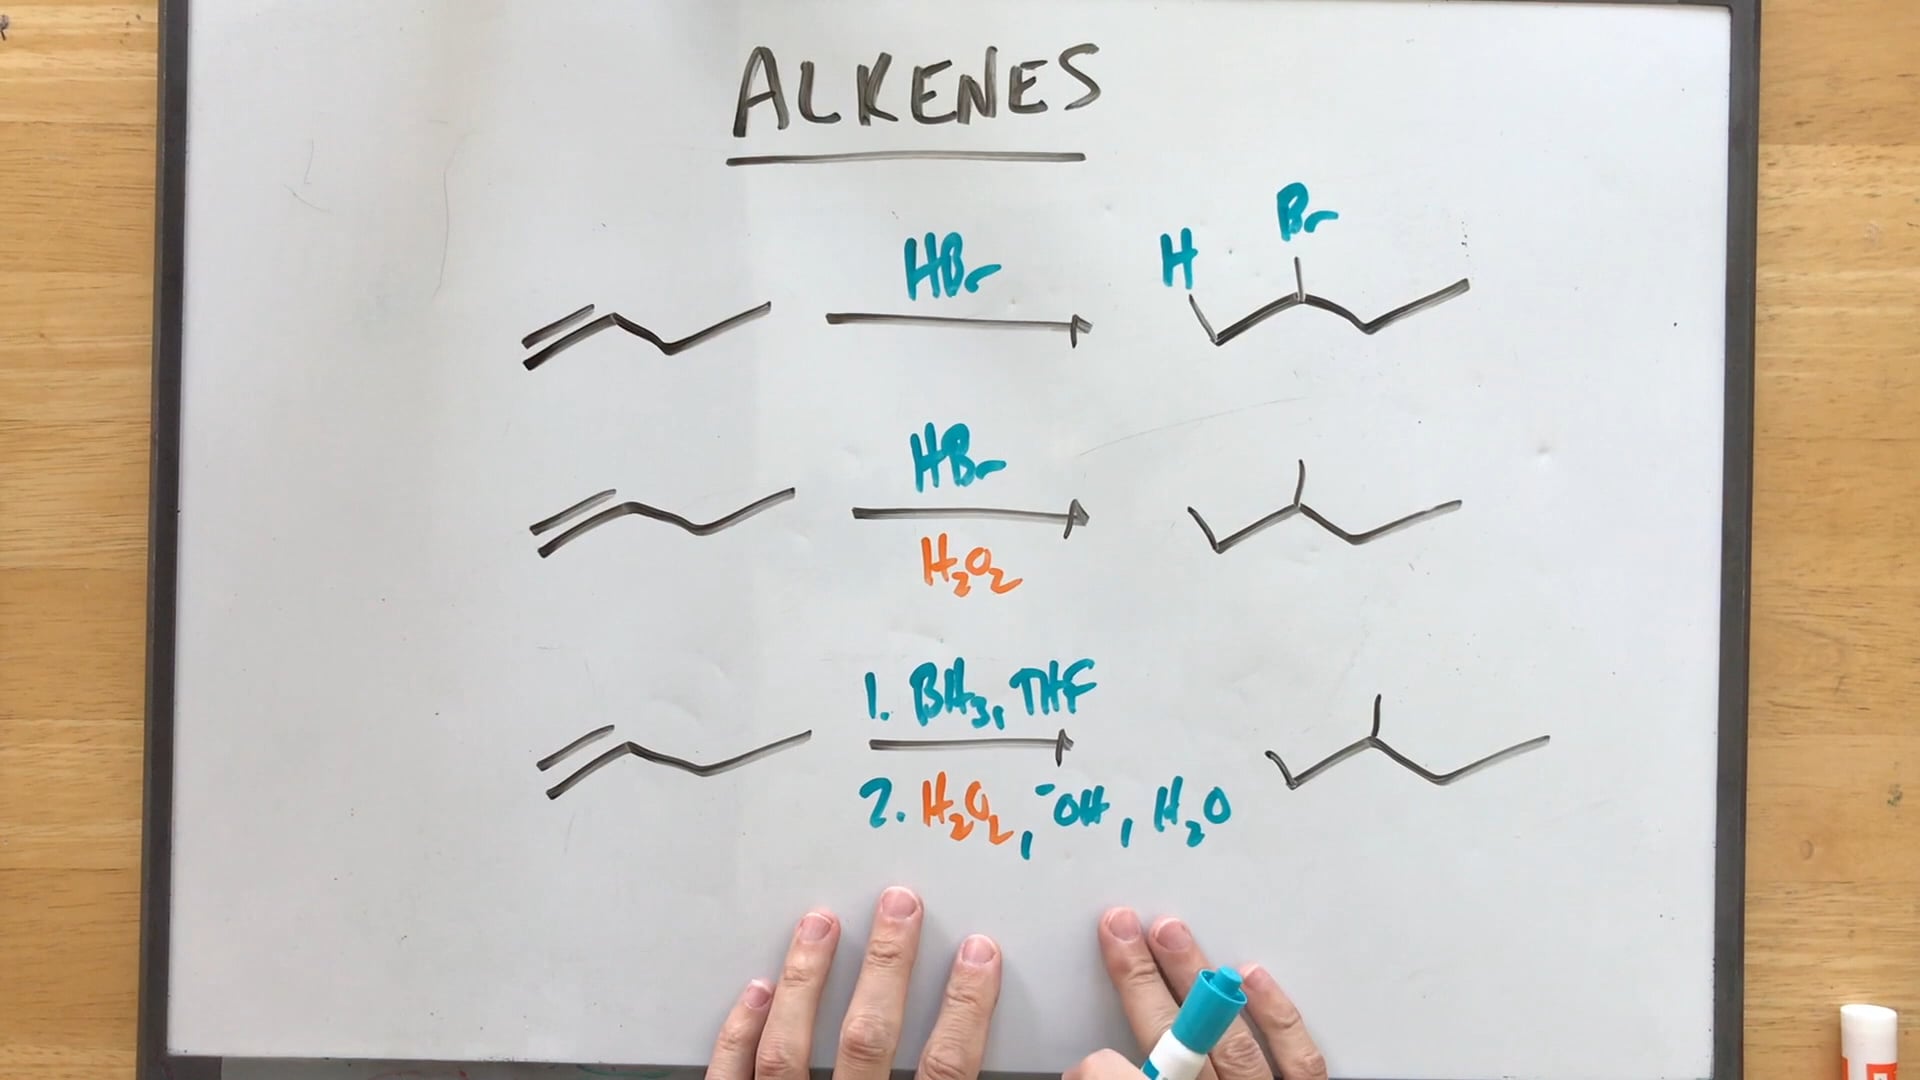 ALKENES
HBr
H
Br
HBr
H₂O₂
1. BH₃, THF
2. H₂O₂, ⁻OH, H₂O